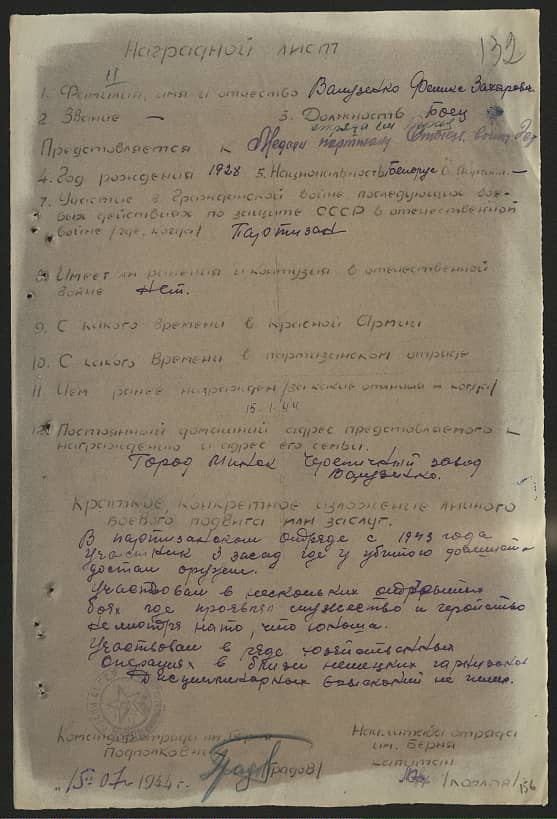 132
Наградной лист
1. Фамилия, имя и отчество Валузенко Феликс Захарович
2. Звание — 3. Должность Боец
отряда им. Берия
Представляется к Медали партизану Отечеств. войны
4. Год рождения 1928 5. Национальность Белорус 6. —
7. Участие в Гражданской войне последующих бое-
вых действиях по защите СССР в отечественной
войне /где, когда/ Партизан
8. Имеет ли ранения и контузия в отечественной
войне Нет.
9. С какого времени в Красной Армии
10. С какого времени в партизанском отряде
11. Чем ранее награжден /за какие отличия и когда/
15.1.44
12. Постоянный домашний адрес представляемого к
награждению и адрес его семьи.
Город Минск Черепичный завод
Валузенко.
Краткое, конкретное изложение личного
боевого подвига или заслуг.
В партизанском отряде с 1943 года
Участник 3 засад где у убитого
достал оружие.
Участвовал в нескольких
боях где проявлял мужество и геройство
несмотря на то, что юноша.
Участвовал в ряде хозяйственных
операциях в близи немецких гарнизонов
Дисциплинарных взысканий не имел.
Командир отряда им. Берия
Подполковник
/Градов/
Нач. штаба отряда
им. Берия
капитан
"15" 07 1944 г.
156